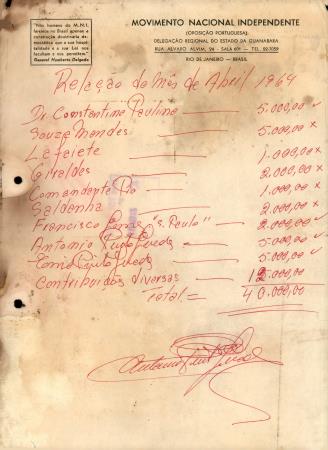 "Nós homens do M.N.I.
faremos no Brasil apenas a
construção doutrinária de-
mocrática que a sua hospi-
talidade e a sua Lei nos
facultam e nos permitem."
General Humberto Delgado
MOVIMENTO NACIONAL INDEPENDENTE
(OPOSIÇÃO PORTUGUESA)
DELEGAÇÃO REGIONAL DO ESTADO DA GUANABARA
RUA ALVARO ALVIM, 24 - SALA 601 - TEL. 22-7059
RIO DE JANEIRO — BRASIL
Relação do mês de Abril 1964
Dr Constantino Paulino — 5.000,00 ✓
Souza Mendes — 5.000,00 x
Lafaiete — 1.000,00 x
Giraldes — 2.000,00 x
Comandante Pio — 1.000,00 x
Saldenha — 2.000,00 x
Francisco "S. Paulo" — 2.000,00 ✓
Antonio — 5.000,00 ✓
— 5.000,00 ✓
Contribuidos diversas — 12.000,00
Total = 40.000,00